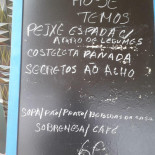 HOJE
TEMOS
PEIXE ESPADA C/
ARROZ DE LEGUMES
COSTELETA PANADA
SECRETOS AO ALHO
SOPA/PÃO/PRATO/BEBIDAS DA CASA
SOBREMESA/CAFÉ